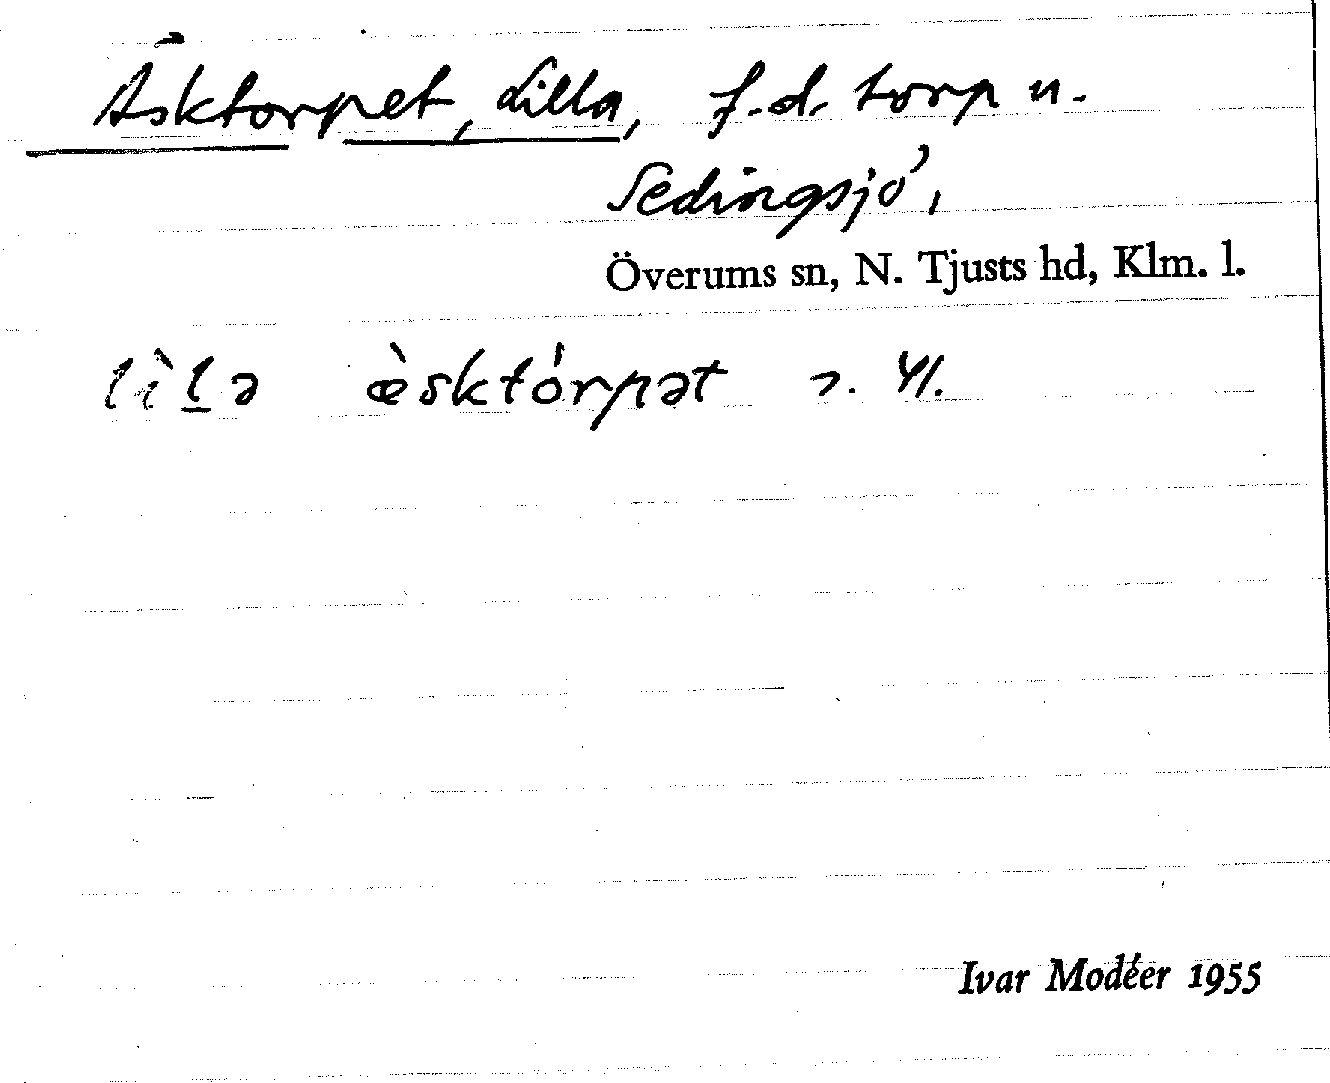 Äsktorpet, Lilla, f.d. torp u.
Sedingsjö,
Överums sn, N. Tjusts hd, Klm. l.
lìl̲ə æ̀sktórpət
Ivar Modéer 1955